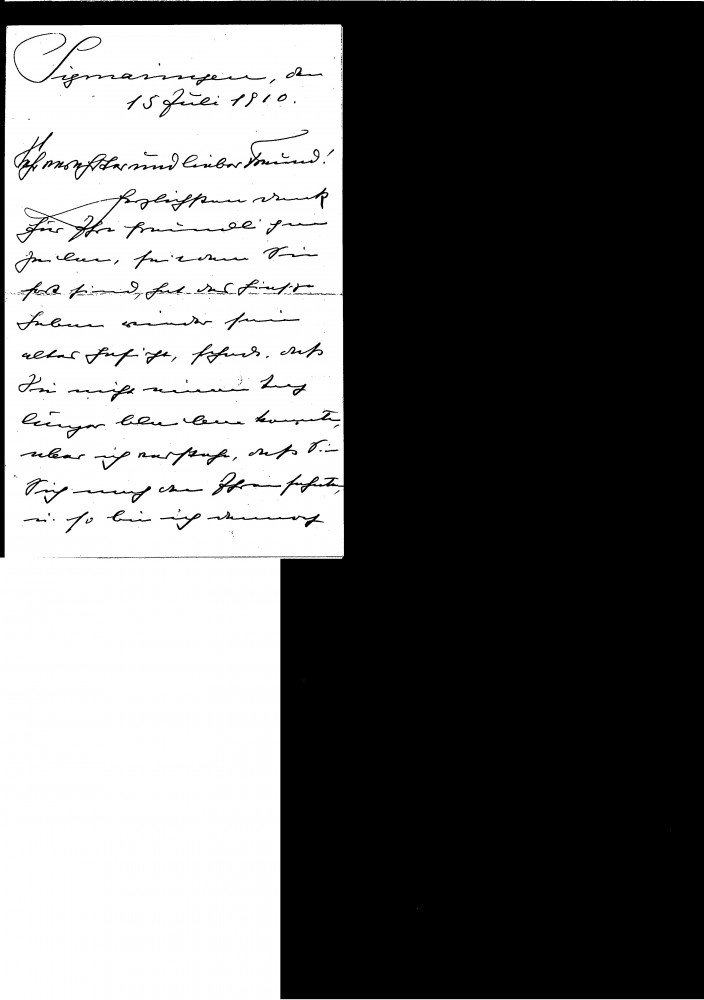 Sigmaringen, den
15 Juli 1910.
Sehr verehrter und lieber Freund!
Herzlichsten Dank
für Ihre freundlichen
Zeilen, seitdem Sie
fort sind, hat das hiesige
Leben wieder sein
altes Gesicht, schade, daß
Sie nicht einen Tag
länger bleiben konnten,
aber ich verstehe, daß Sie
Sich nach den Ihren sehnten,
u. so bin ich dennoch